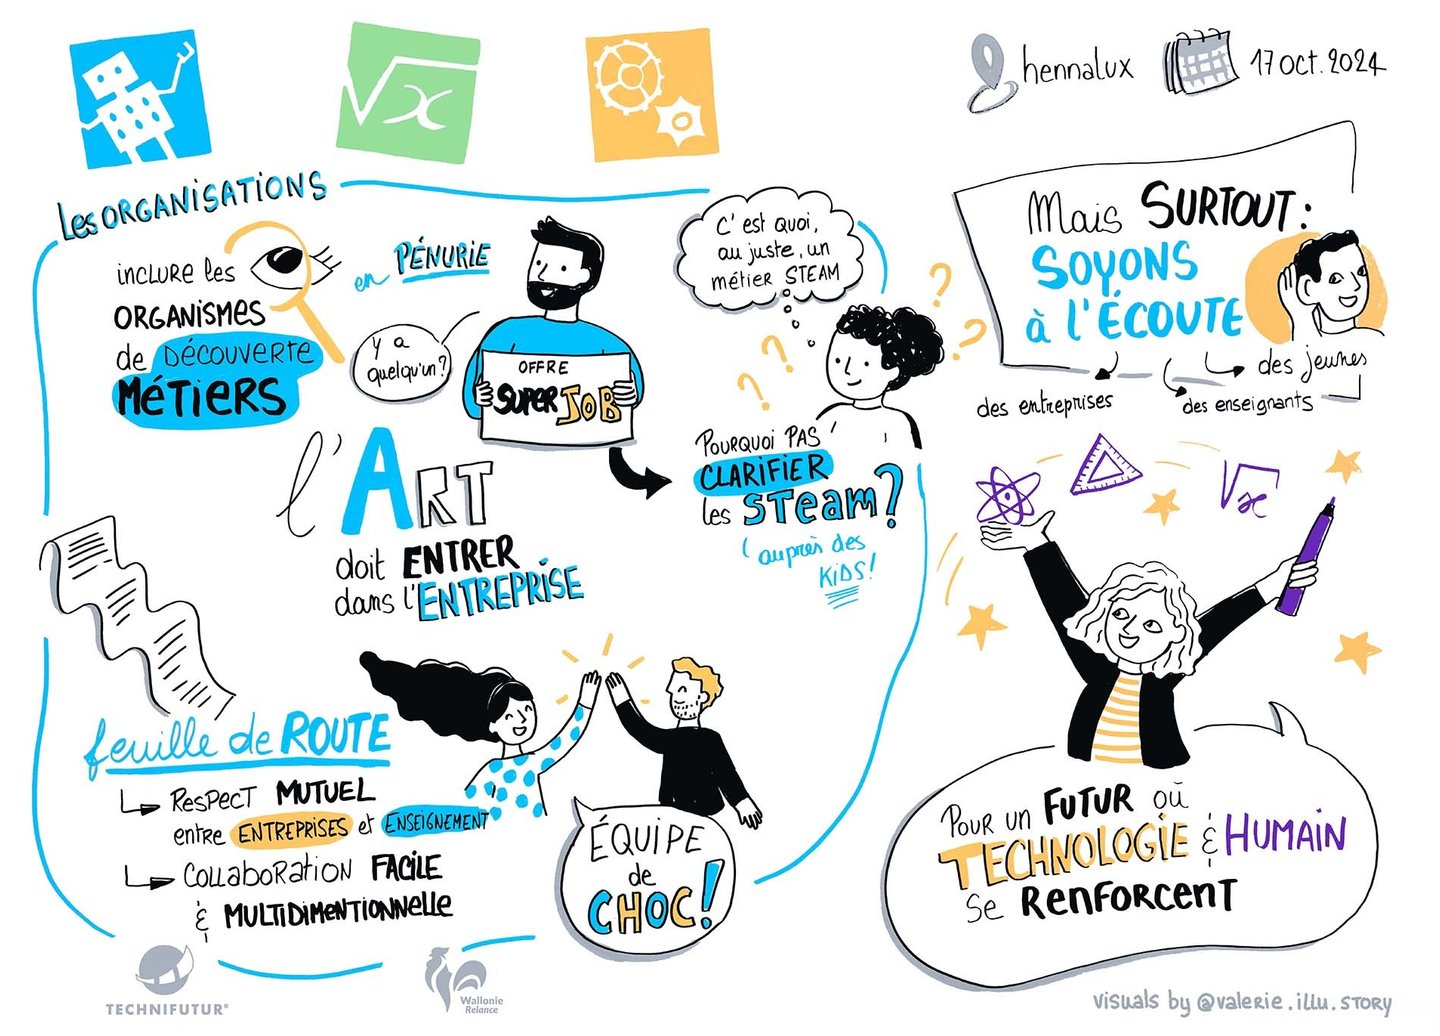 hennalux
17 oct. 2024
Les ORGANISATIONS
inclure les
ORGANISMES
de DÉCOUVERTE
MÉTIERS
en PÉNURIE
Y a
quelqu'un?
OFFRE
SUPER JOB
C'est quoi,
au juste, un
métier STEAM
POURQUOI PAS
CLARIFIER
les STEAM?
(auprès des
KIDS!
l'ART
doit ENTRER
dans l'ENTREPRISE
feuille de ROUTE
RESPECT MUTUEL
entre ENTREPRISES et ENSEIGNEMENT
COLLABORATION FACILE
& MULTIDIMENTIONNELLE
ÉQUIPE
de
CHOC!
Mais SURTOUT:
SOYONS
à l'ÉCOUTE
des jeunes
des entreprises
des enseignants
√x
√x
POUR UN FUTUR OÙ
TECHNOLOGIE & HUMAIN
Se RENFORCENT
TECHNIFUTUR®
Wallonie
Relance
visuals by @valerie.illu.story